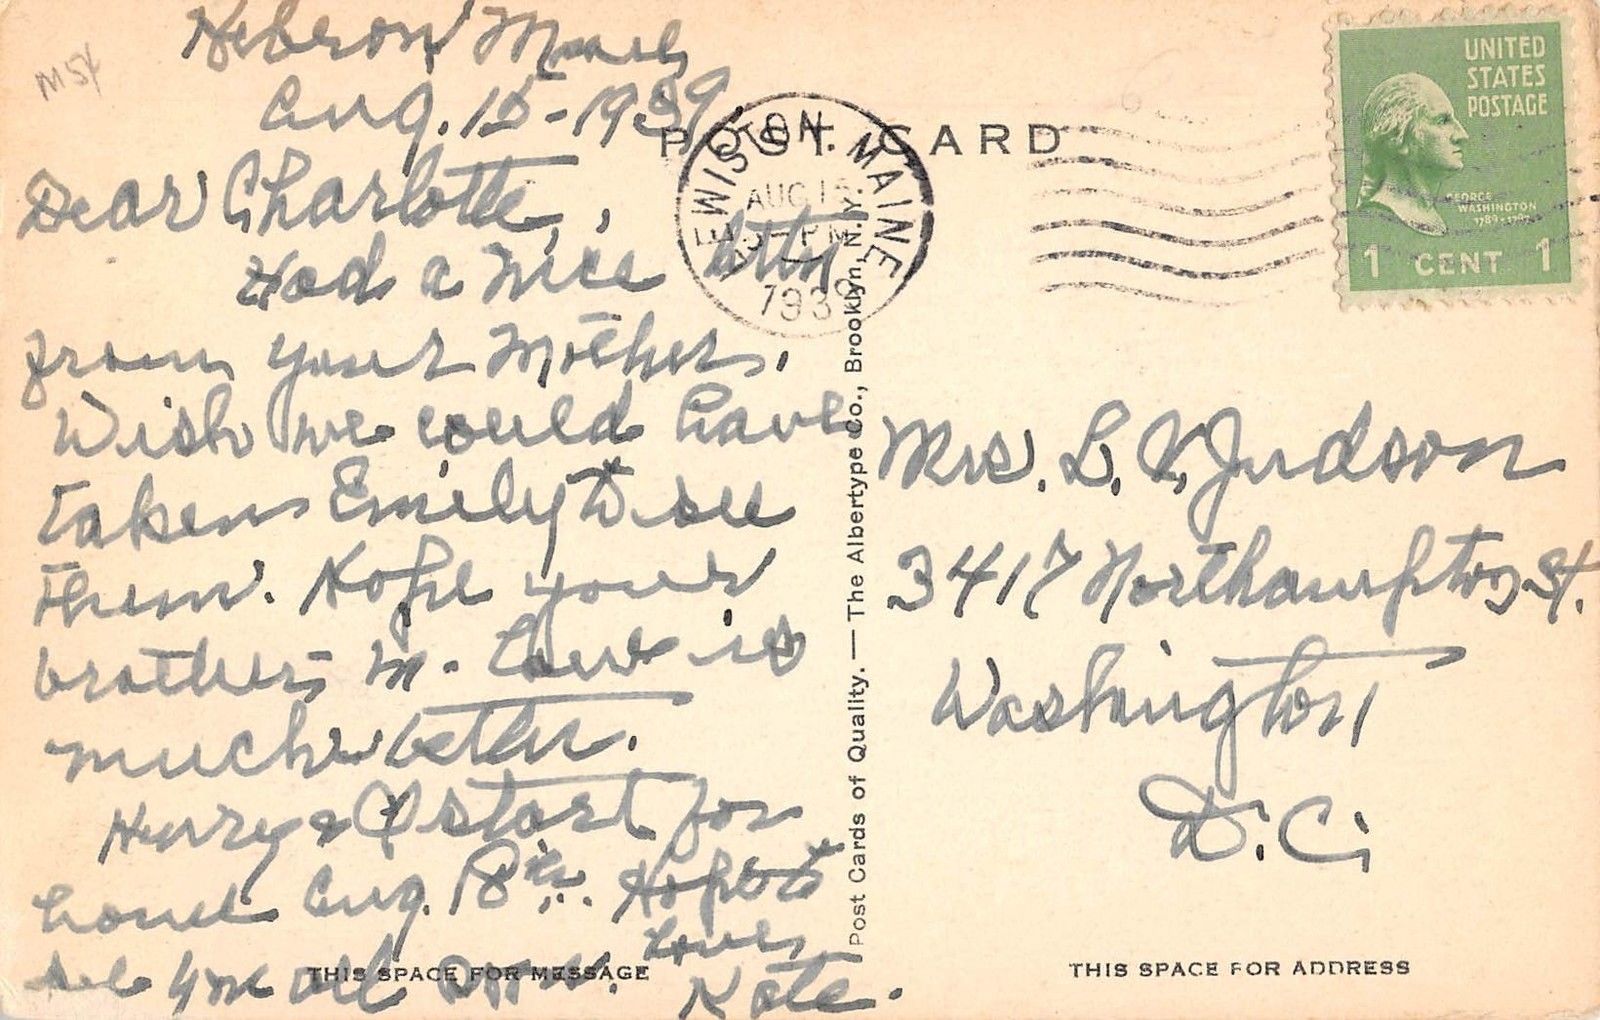 M5x
Hebron Maine
Aug. 15 - 1939
POST CARD
LEWISTON, MAINE
AUG 15
5 - PM
1939
UNITED
STATES
POSTAGE
GEORGE
WASHINGTON
1789-1797
1 CENT 1
Dear Charlotte,
Had a nice letter
from your Mother.
Wish we could have
taken Emily to see
them. Hope your
brother in law is
much better.
Henry & I start for
home Aug. 18th. Hope to
see you all soon.
Love,
Kate.
Post Cards of Quality. — The Albertype Co., Brooklyn, N. Y.
Mrs. L. V. Judson
3417 Northampton St.
Washington
D.C.
THIS SPACE FOR MESSAGE
THIS SPACE FOR ADDRESS